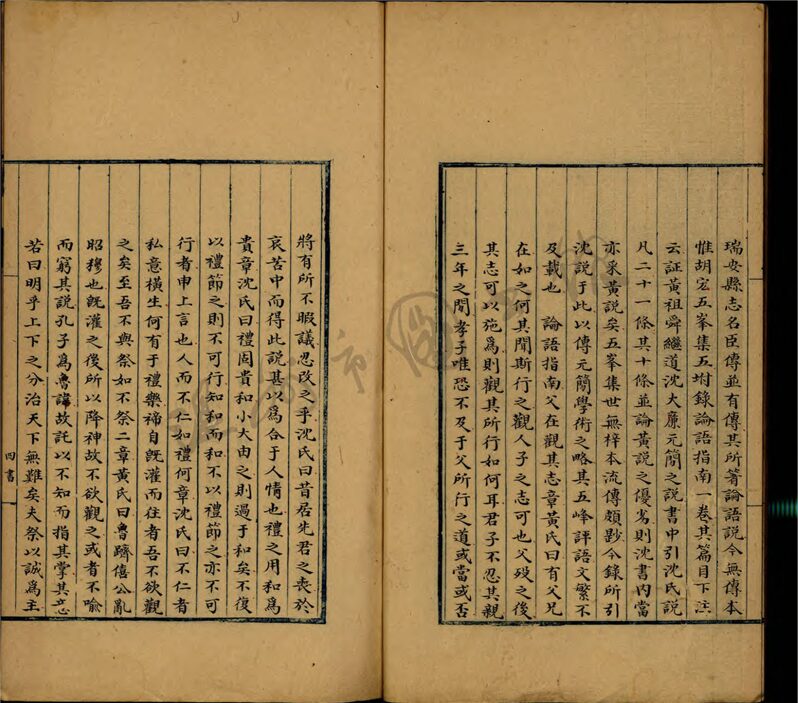 瑞安縣志名臣傳並有傳其所箸論語說今無傳本
惟胡宏五峯集五坿錄論語指南一卷其篇目下注
云証黃祖舜繼道沈大廉元簡之說書中引沈氏說
凡二十一條其十條並論黃說之優劣則沈書內當
亦釆黃說矣五峯集世無梓本流傳頗尠今錄所引
沈說于此以傳元簡學術之略其五峰評語文繁不
及載也　論語指南父在觀其志章黃氏曰有父兄
在如之何其聞斯行之觀人子之志可也父歿之後
其志可以施爲則觀其所行如何耳君子不忍其親
三年之間孝子唯恐不及于父所行之道或當或否
將有所不暇議忍改之乎沈氏曰昔居先君之喪於
哀苦中而得此說甚以爲合于人情也禮之用和爲
貴章沈氏曰禮固貴和小大由之則過于和矣不復
以禮節之則不可行知和而和不以禮節之亦不可
行者申上言也人而不仁如禮何章沈氏曰不仁者
私意橫生何有于禮樂禘自旣灌而往者吾不欲觀
之矣至吾不與祭如不祭二章黃氏曰魯躋僖公亂
昭穆也旣灌之後所以降神故不欲觀之或者不喻
而窮其說孔子爲魯諱故託以不知而指其掌其意
若曰明乎上下之分治天下無難矣夫祭以誠爲主
四書